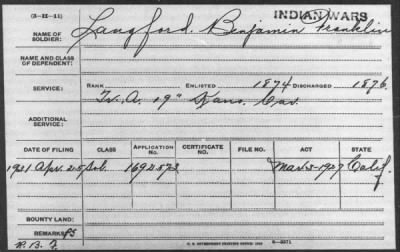 (3-II-11)
INDIAN WARS
NAME OF SOLDIER: Langford. Benjamin Franklin
NAME AND CLASS OF DEPENDENT:
SERVICE: RANK ENLISTED 1874 DISCHARGED 1876.
Tr. A. 19" Kans. Cav.
ADDITIONAL SERVICE:
DATE OF FILING CLASS APPLICATION NO. CERTIFICATE NO. FILE NO. ACT STATE
1931 Apr. 25 Sol. 1692573 Mar 3-1927 Calif
BOUNTY LAND:
REMARKS:
U. S. GOVERNMENT PRINTING OFFICE